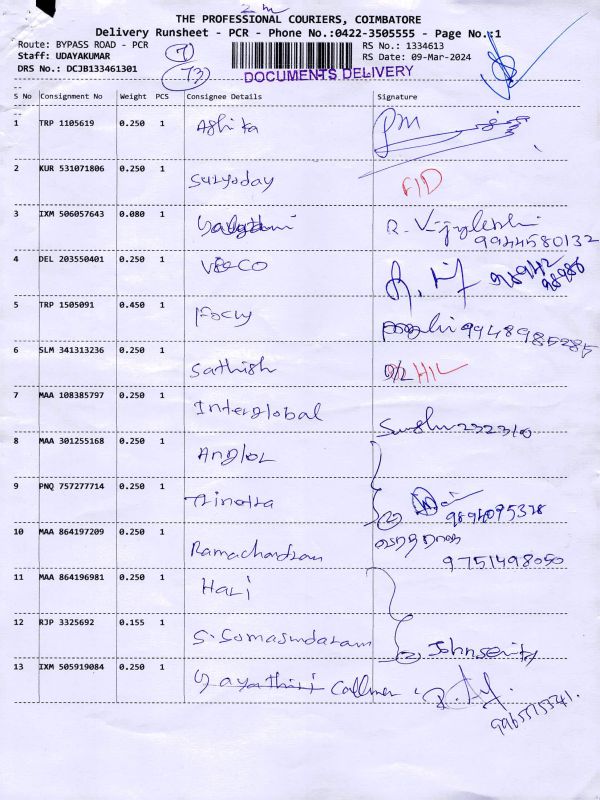 2 m
THE PROFESSIONAL COURIERS, COIMBATORE
Delivery Runsheet - PCR - Phone No.:0422-3505555 - Page No.:1
Route: BYPASS ROAD - PCR 7 RS No.: 1334613
Staff: UDAYAKUMAR RS Date: 09-Mar-2024
DRS No.: DCJB133461301 73 DOCUMENTS DELIVERY
S No Consignment No Weight PCS Consignee Details Signature
1 TRP 1105619 0.250 1 Ashika
2 KUR 531071806 0.250 1 Suryoday
3 IXM 506057643 0.080 1 R. Vijylekshi
9944580132
4 DEL 203550401 0.250 1
5 TRP 1505091 0.450 1 Focuy 9948985285
6 SLM 341313236 0.250 1 Sathish
7 MAA 108385797 0.250 1 Interglobal
232310
8 MAA 301255168 0.250 1
9 PNQ 757277714 0.250 1 2
9894095328
10 MAA 864197209 0.250 1 Ramachandran
9751498050
11 MAA 864196981 0.250 1 Hari
12 RJP 3325692 0.155 1 S. Somasundaram 2
13 IXM 505919084 0.250 1 Gayathiri